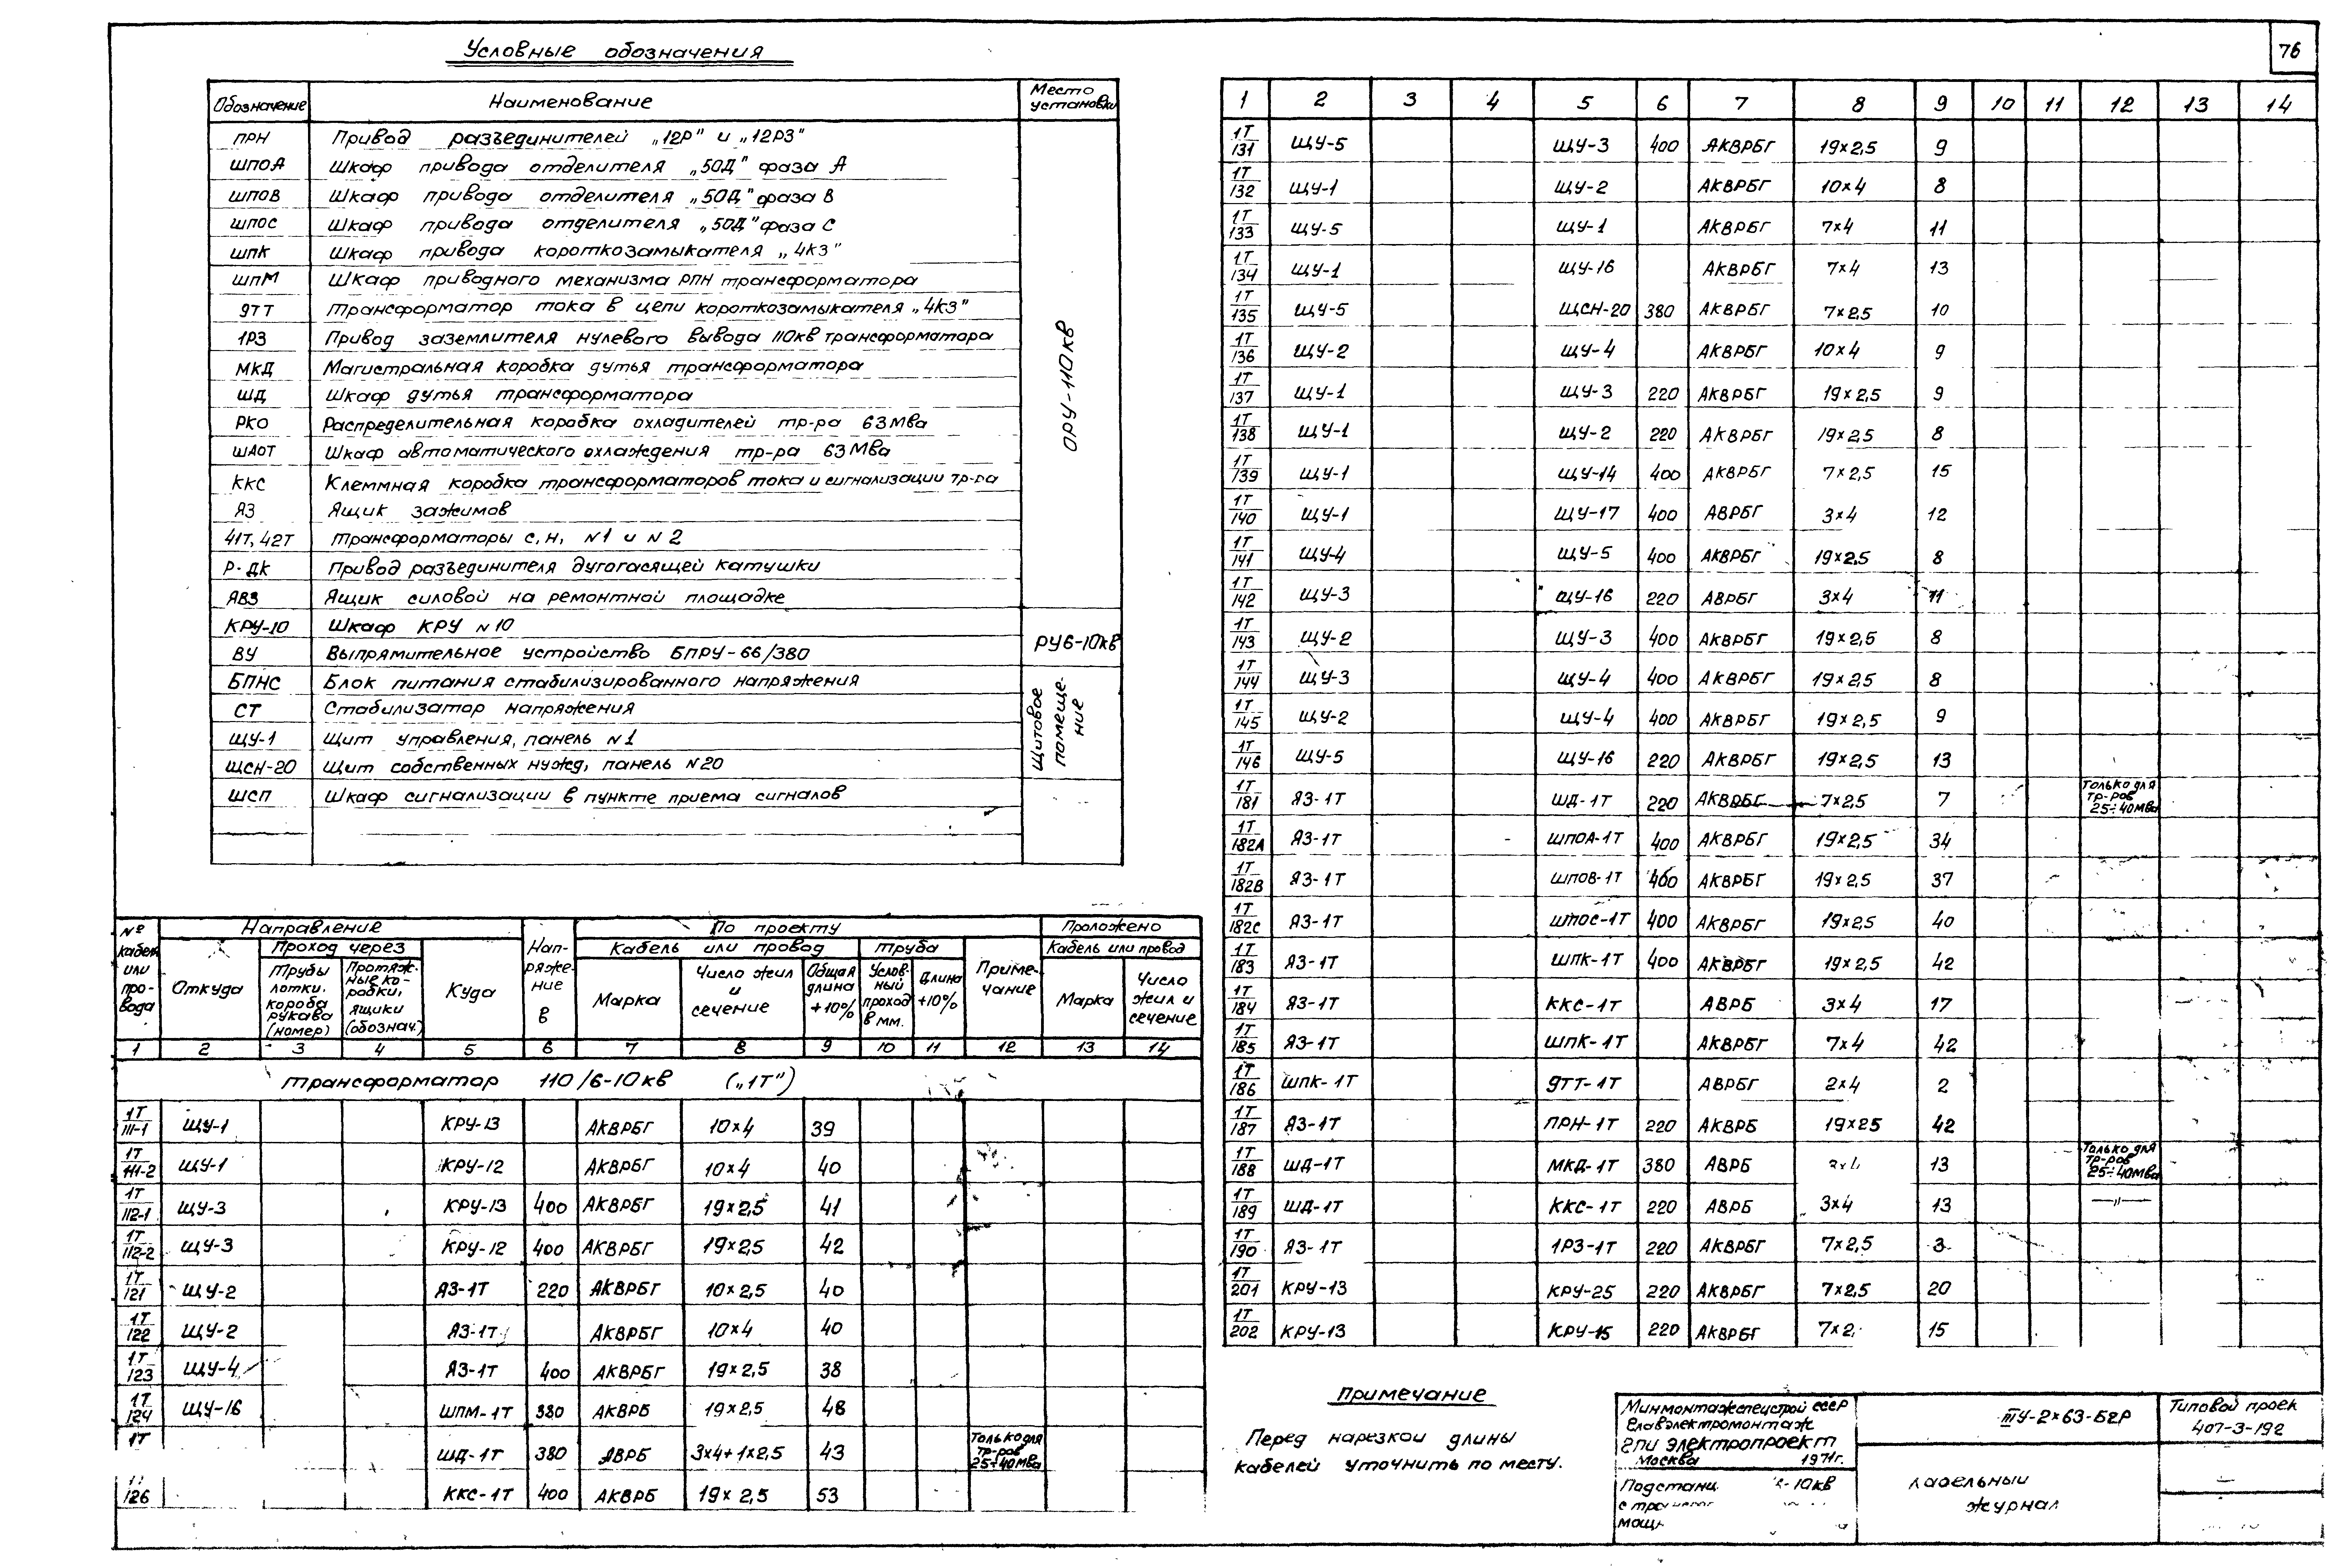 76
Условные обозначения
Обозначение Наименование Место установки
ПРН Привод разъединителей „12Р" и „12РЗ"
ШПОА Шкаф привода отделителя „50Д" фаза А
ШПОВ Шкаф привода отделителя „50Д" фаза В
ШПОС Шкаф привода отделителя „50Д" фаза С
ШПК Шкаф привода короткозамыкателя „4КЗ"
ШПМ Шкаф приводного механизма РПН трансформатора
9ТТ Трансформатор тока в цепи короткозамыкателя „4КЗ"
1РЗ Привод заземлителя нулевого вывода 110кв трансформатора
МКД Магистральная коробка дутья трансформатора
ШД Шкаф дутья трансформатора
РКО Распределительная коробка охладителей тр-ра 63Мва
ШАОТ Шкаф автоматического охлаждения тр-ра 63Мва
ККС Клеммная коробка трансформаторов тока и сигнализации тр-ра
ЯЗ Ящик зажимов
41Т, 42Т Трансформаторы с.н. N1 и N2
Р-ДК Привод разъединителя дугогасящей катушки
ЯВЗ Ящик силовой на ремонтной площадке
ОРУ-110кв
КРУ-10 Шкаф КРУ N10
ВУ Выпрямительное устройство БПРУ-66/380
РУ6-10кв
БПНС Блок питания стабилизированного напряжения
СТ Стабилизатор напряжения
ЩУ-1 Щит управления, панель N1
ЩСН-20 Щит собственных нужд, панель N20
Щитовое помеще-ние
ШСП Шкаф сигнализации в пункте приема сигналов
№ кабеля или про-вода Направление Нап-ряже-ние В По проекту Проложено
Откуда Проход через Куда Кабель или провод Труба Приме-чание Кабель или провод
Трубы лотки, короба рукава (номер) Протяж-ные ко-робки, ящики (обознач.) Марка Число жил и сечение Общая длина +10% Услов-ный проход в мм. Длина +10% Марка Число жил и сечение
1 2 3 4 5 6 7 8 9 10 11 12 13 14
Трансформатор 110/6-10кв („1Т")
1Т/111-1 ЩУ-1 КРУ-13 АКВРБГ 10×4 39
1Т/111-2 ЩУ-1 КРУ-12 АКВРБГ 10×4 40
1Т/112-1 ЩУ-3 КРУ-13 400 АКВРБГ 19×2,5 41
1Т/112-2 ЩУ-3 КРУ-12 400 АКВРБГ 19×2,5 42
1Т/121 ЩУ-2 ЯЗ-1Т 220 АКВРБГ 10×2,5 40
1Т/122 ЩУ-2 ЯЗ-1Т АКВРБГ 10×4 40
1Т/123 ЩУ-4 ЯЗ-1Т 400 АКВРБГ 19×2,5 38
1Т/124 ЩУ-16 ШПМ-1Т 380 АКВРБ 19×2,5 48
1Т ШД-1Т 380 АВРБ 3×4+1×2,5 43 Только для тр-ров 25÷40Мва
126 ККС-1Т 400 АКВРБ 19×2,5 53
1 2 3 4 5 6 7 8 9 10 11 12 13 14
1Т/131 ЩУ-5 ЩУ-3 400 АКВРБГ 19×2,5 9
1Т/132 ЩУ-1 ЩУ-2 АКВРБГ 10×4 8
1Т/133 ЩУ-5 ЩУ-1 АКВРБГ 7×4 11
1Т/134 ЩУ-1 ЩУ-16 АКВРБГ 7×4 13
1Т/135 ЩУ-5 ЩСН-20 380 АКВРБГ 7×2,5 10
1Т/136 ЩУ-2 ЩУ-4 АКВРБГ 10×4 9
1Т/137 ЩУ-1 ЩУ-3 220 АКВРБГ 19×2,5 9
1Т/138 ЩУ-1 ЩУ-2 220 АКВРБГ 19×2,5 8
1Т/139 ЩУ-1 ЩУ-14 400 АКВРБГ 7×2,5 15
1Т/140 ЩУ-1 ЩУ-17 400 АВРБГ 3×4 12
1Т/141 ЩУ-4 ЩУ-5 400 АКВРБГ 19×2,5 8
1Т/142 ЩУ-3 ЩУ-16 220 АВРБГ 3×4 11
1Т/143 ЩУ-2 ЩУ-3 400 АКВРБГ 19×2,5 8
1Т/144 ЩУ-3 ЩУ-4 400 АКВРБГ 19×2,5 8
1Т/145 ЩУ-2 ЩУ-4 400 АКВРБГ 19×2,5 9
1Т/146 ЩУ-5 ЩУ-16 220 АКВРБГ 19×2,5 13
1Т/181 ЯЗ-1Т ШД-1Т 220 АКВРБГ 7×2,5 7 Только для тр-ров 25÷40Мва
1Т/182А ЯЗ-1Т ШПОА-1Т 400 АКВРБГ 19×2,5 34
1Т/182В ЯЗ-1Т ШПОВ-1Т 400 АКВРБГ 19×2,5 37
1Т/182С ЯЗ-1Т ШПОС-1Т 400 АКВРБГ 19×2,5 40
1Т/183 ЯЗ-1Т ШПК-1Т 400 АКВРБГ 19×2,5 42
1Т/184 ЯЗ-1Т ККС-1Т АВРБ 3×4 17
1Т/185 ЯЗ-1Т ШПК-1Т АКВРБГ 7×4 42
1Т/186 ШПК-1Т 9ТТ-1Т АВРБГ 2×4 2
1Т/187 ЯЗ-1Т ПРН-1Т 220 АКВРБ 19×25 42
1Т/188 ШД-1Т МКД-1Т 380 АВРБ 13 Только для тр-ров 25÷40Мва
1Т/189 ШД-1Т ККС-1Т 220 АВРБ 3×4 13 —"—
1Т/190 ЯЗ-1Т 1РЗ-1Т 220 АКВРБГ 7×2,5 3
1Т/201 КРУ-13 КРУ-25 220 АКВРБГ 7×2,5 20
1Т/202 КРУ-13 КРУ-15 220 АКВРБГ 7×2, 15
Примечание
Перед нарезкой длины
кабелей уточнить по месту.
Минмонтажспецстрой СССР
Главэлектромонтаж
ГПИ электропроект
Москва 1971г.
ⅢУ-2×63-Б2Р
Типовой проек
407-3-192
Подстанц -10кв
мощ
журнал